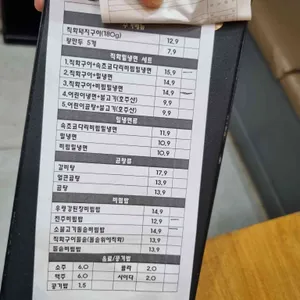 직화돼지구이(180g) 12,9
왕만두 5개 7,9
직화칡냉면 세트
1.직화구이+속초코다리비빔칡냉면 15,9
2.직화구이+칡냉면 14,9
3.직화구이+비빔칡냉면 14,9
4.어린이냉면+불고기(호주산) 9,9
5.어린이곰탕+불고기(호주산) 9,9
칡냉면류
속초코다리비빔칡냉면 11,9
칡냉면 10,9
비빔칡냉면 10,9
곰탕류
갈비탕 17,9
얼큰곰탕 13,9
곰탕 13,9
비빔밥
우렁강된장비빔밥 14,9
전주비빔밥 12,9
소불고기돌솥비빔밥 14,9
13,9
돌솥비빔밥 13,9
음료/공기밥
소주 6,0 콜라 2,0
맥주 6,0 사이다 2,0
공기밥 1,5